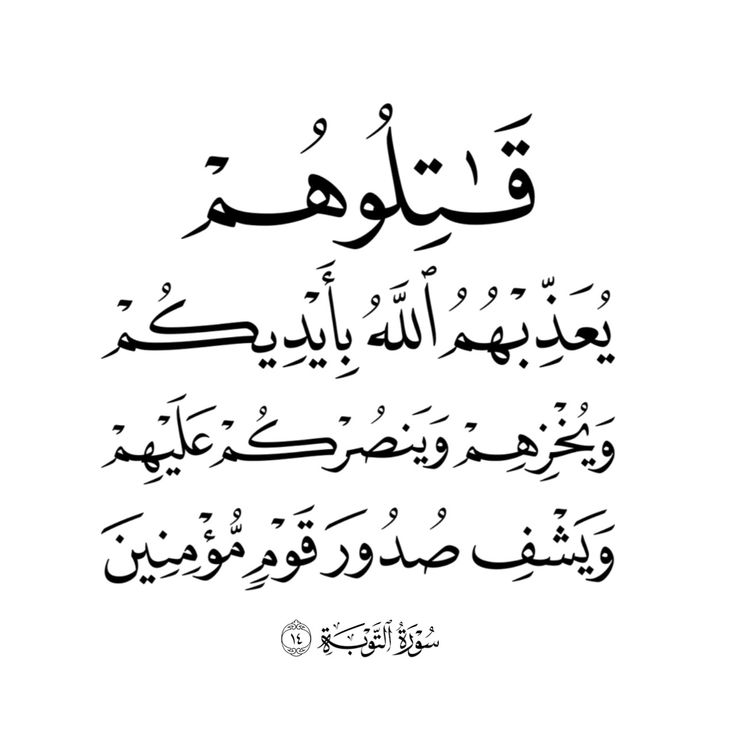 قَـٰتِلُوهُمْ
يُعَذِّبْهُمُ ٱللَّهُ بِأَيْدِيكُمْ
وَيُخْزِهِمْ وَيَنصُرْكُمْ عَلَيْهِمْ
وَيَشْفِ صُدُورَ قَوْمٍ مُّؤْمِنِينَ
سُورَةُ ٱلتَّوْبَةِ ١٤